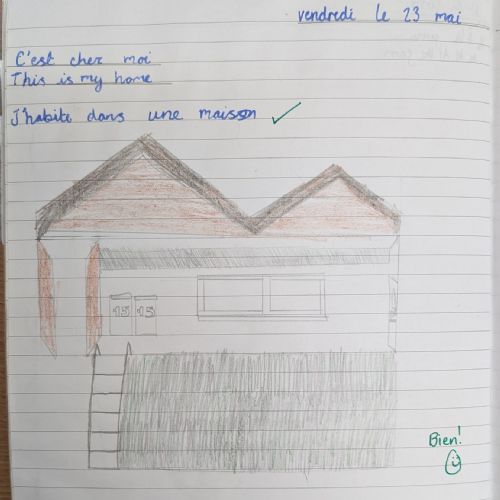 vendredi le 23 mai
C'est cher moi
This is my home
J'habite dans une maison
15 15
Bien!